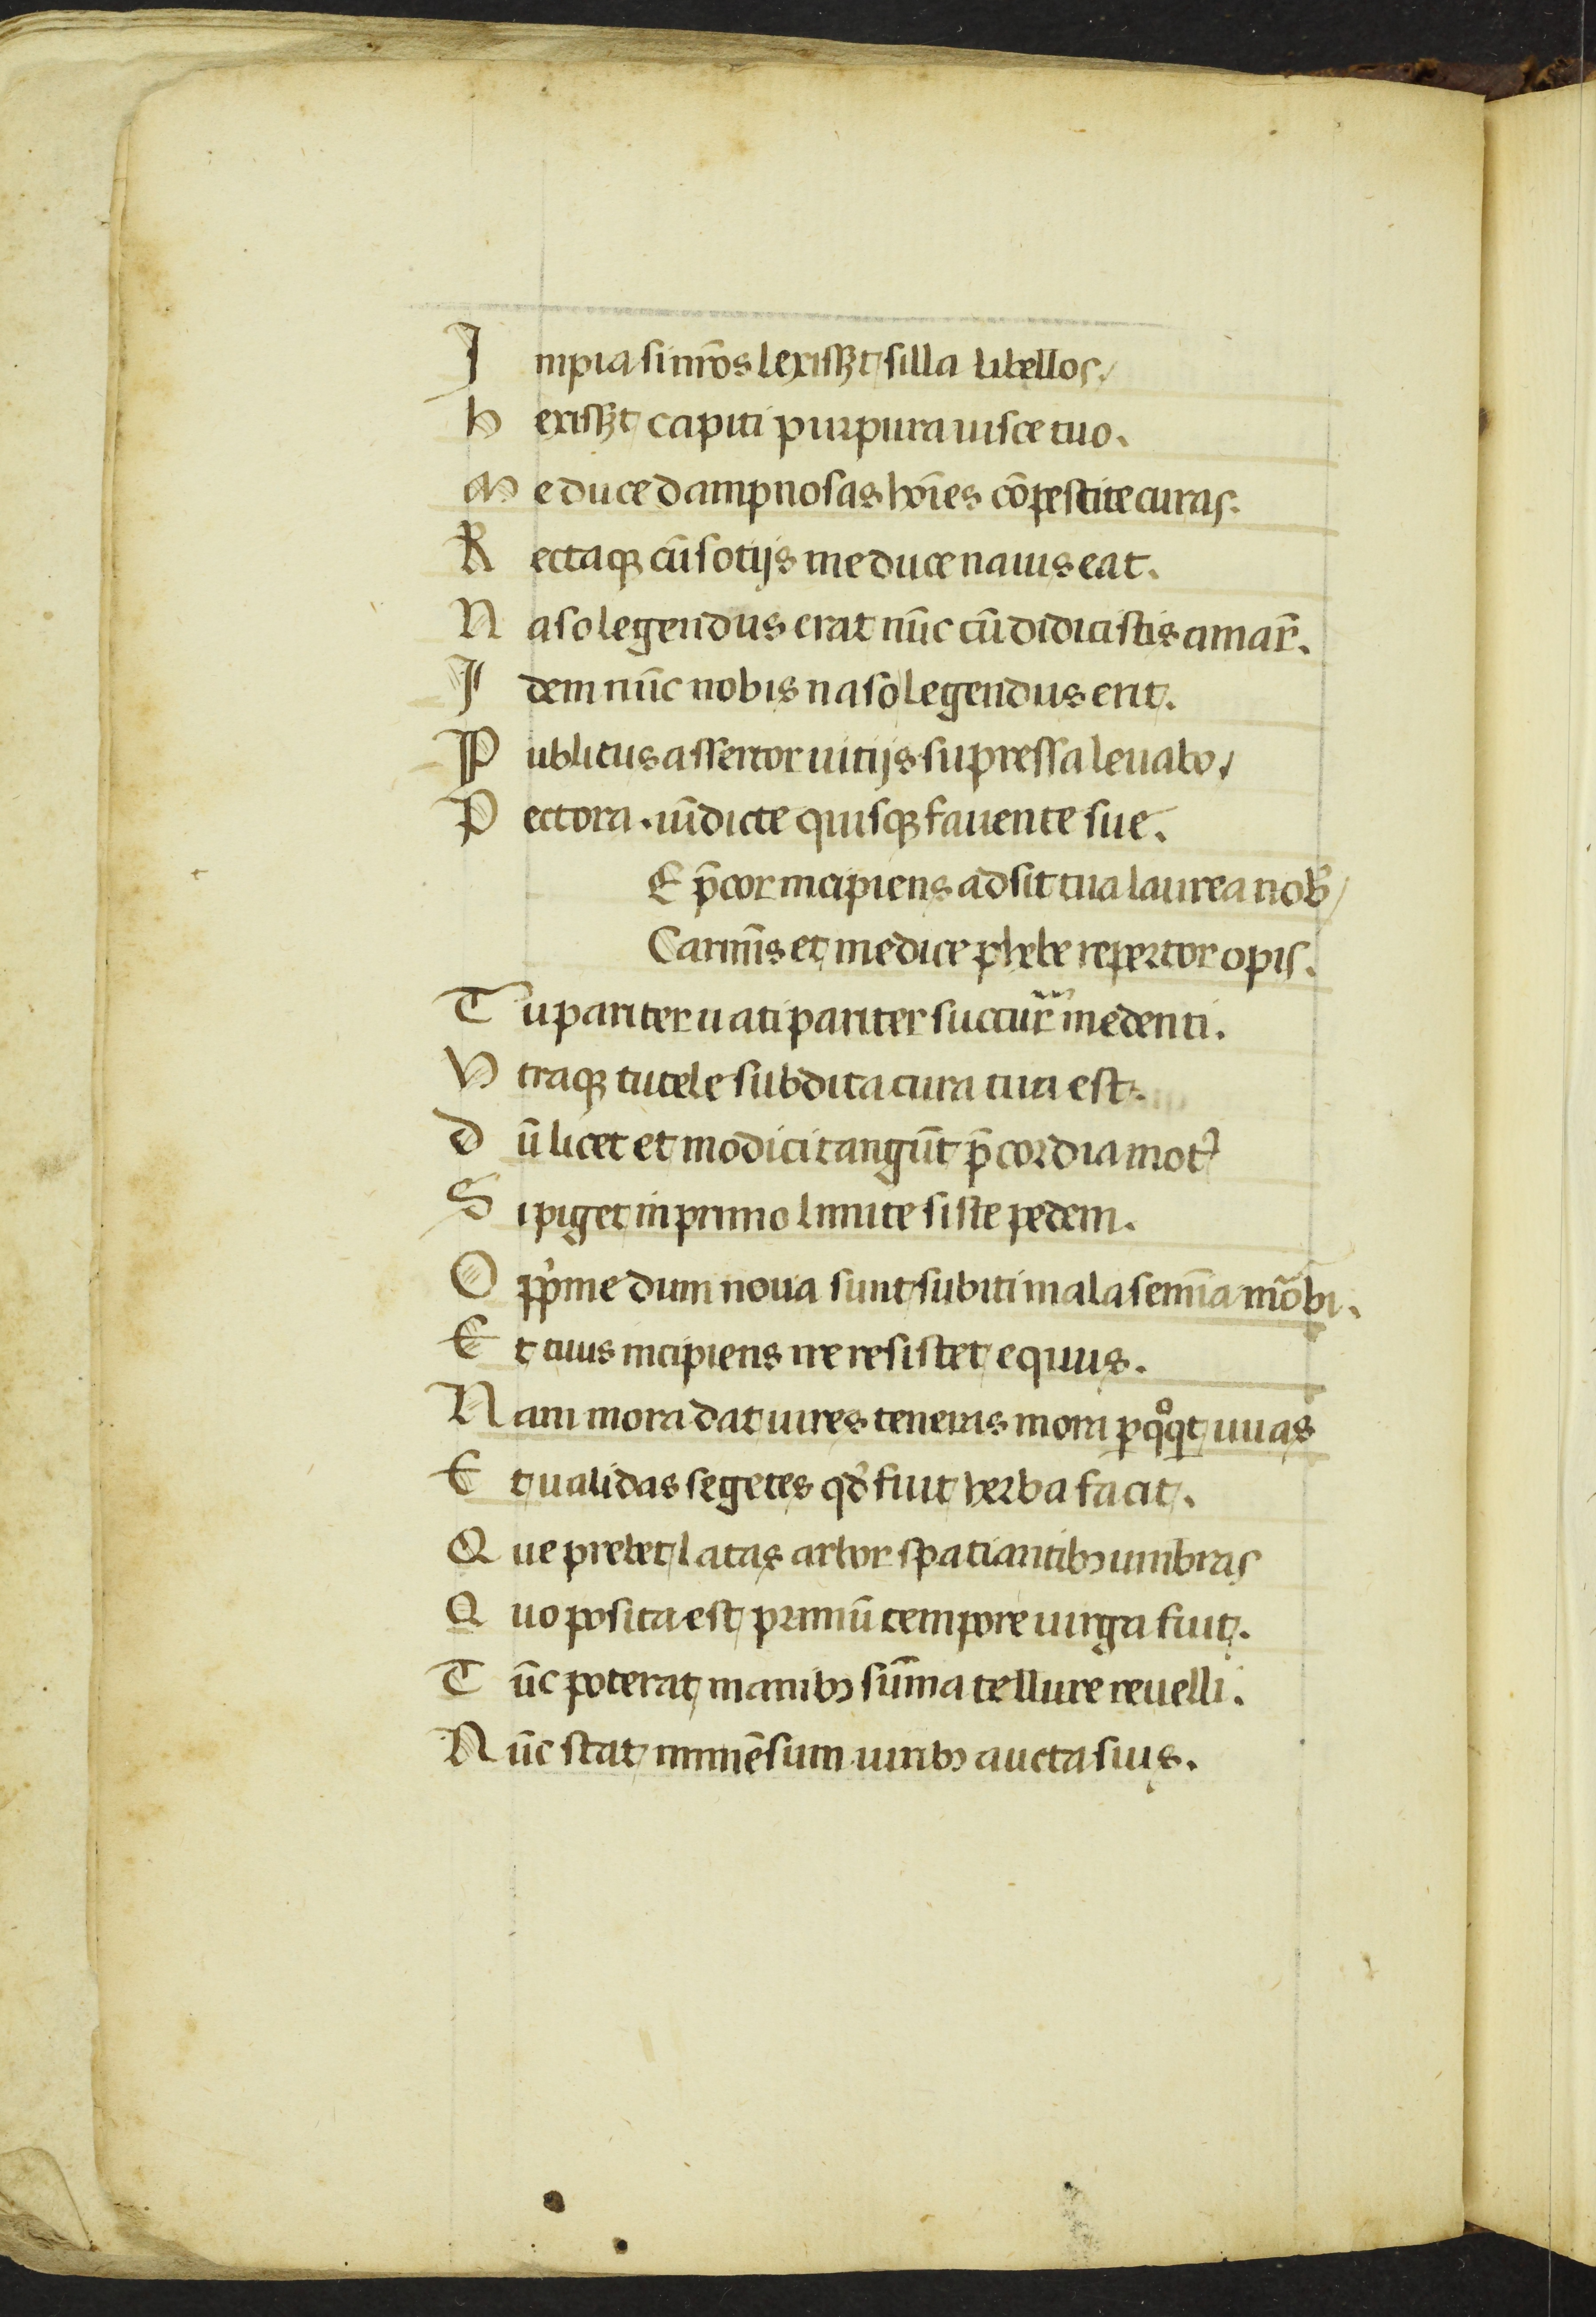 I mpia si nr̄os lexisꝫt silla libellos /
h exisꝫt capiti purpura nisce tuo.
M e duce dampnosas hoīes cōpescite curas.
R ectaqꝫ cū sotijs me duce nauis eat.
N aso legendus erat nūc cū didicistis amar̄.
I dem nūc nobis naso legendus erit.
P ublicus assertor uitijs supressa leuabo /
P ectora. uīdicte quisqꝫ fauente sue.
E p̄cor incipiens adsit tua laurea nob̄ /
Carmīs et medice phebe repertor opis.
T u pariter uati pariter succur̄ medenti.
V traqꝫ tutele subdita cura tua est.
D ū licet et modici tangūt p̄cordia motꝰ
S i piget in primo limite siste pedem.
O pp̄me dum noua sunt subiti mala semīa mōbi.
E t tuus incipiens ire resistet equus.
N am mora dat uires teneras mora ꝑqͦqt uuas
E t ualidas segetes qd̓ fuit herba facit.
Q ue prebet latas arbor spatiantibꝫ umbras
Q uo posita est primū tempore uirga fuit.
T ūc poterat manibꝫ sūma tellure reuelli.
N ūc stat immēsum uiribꝫ aucta suis.